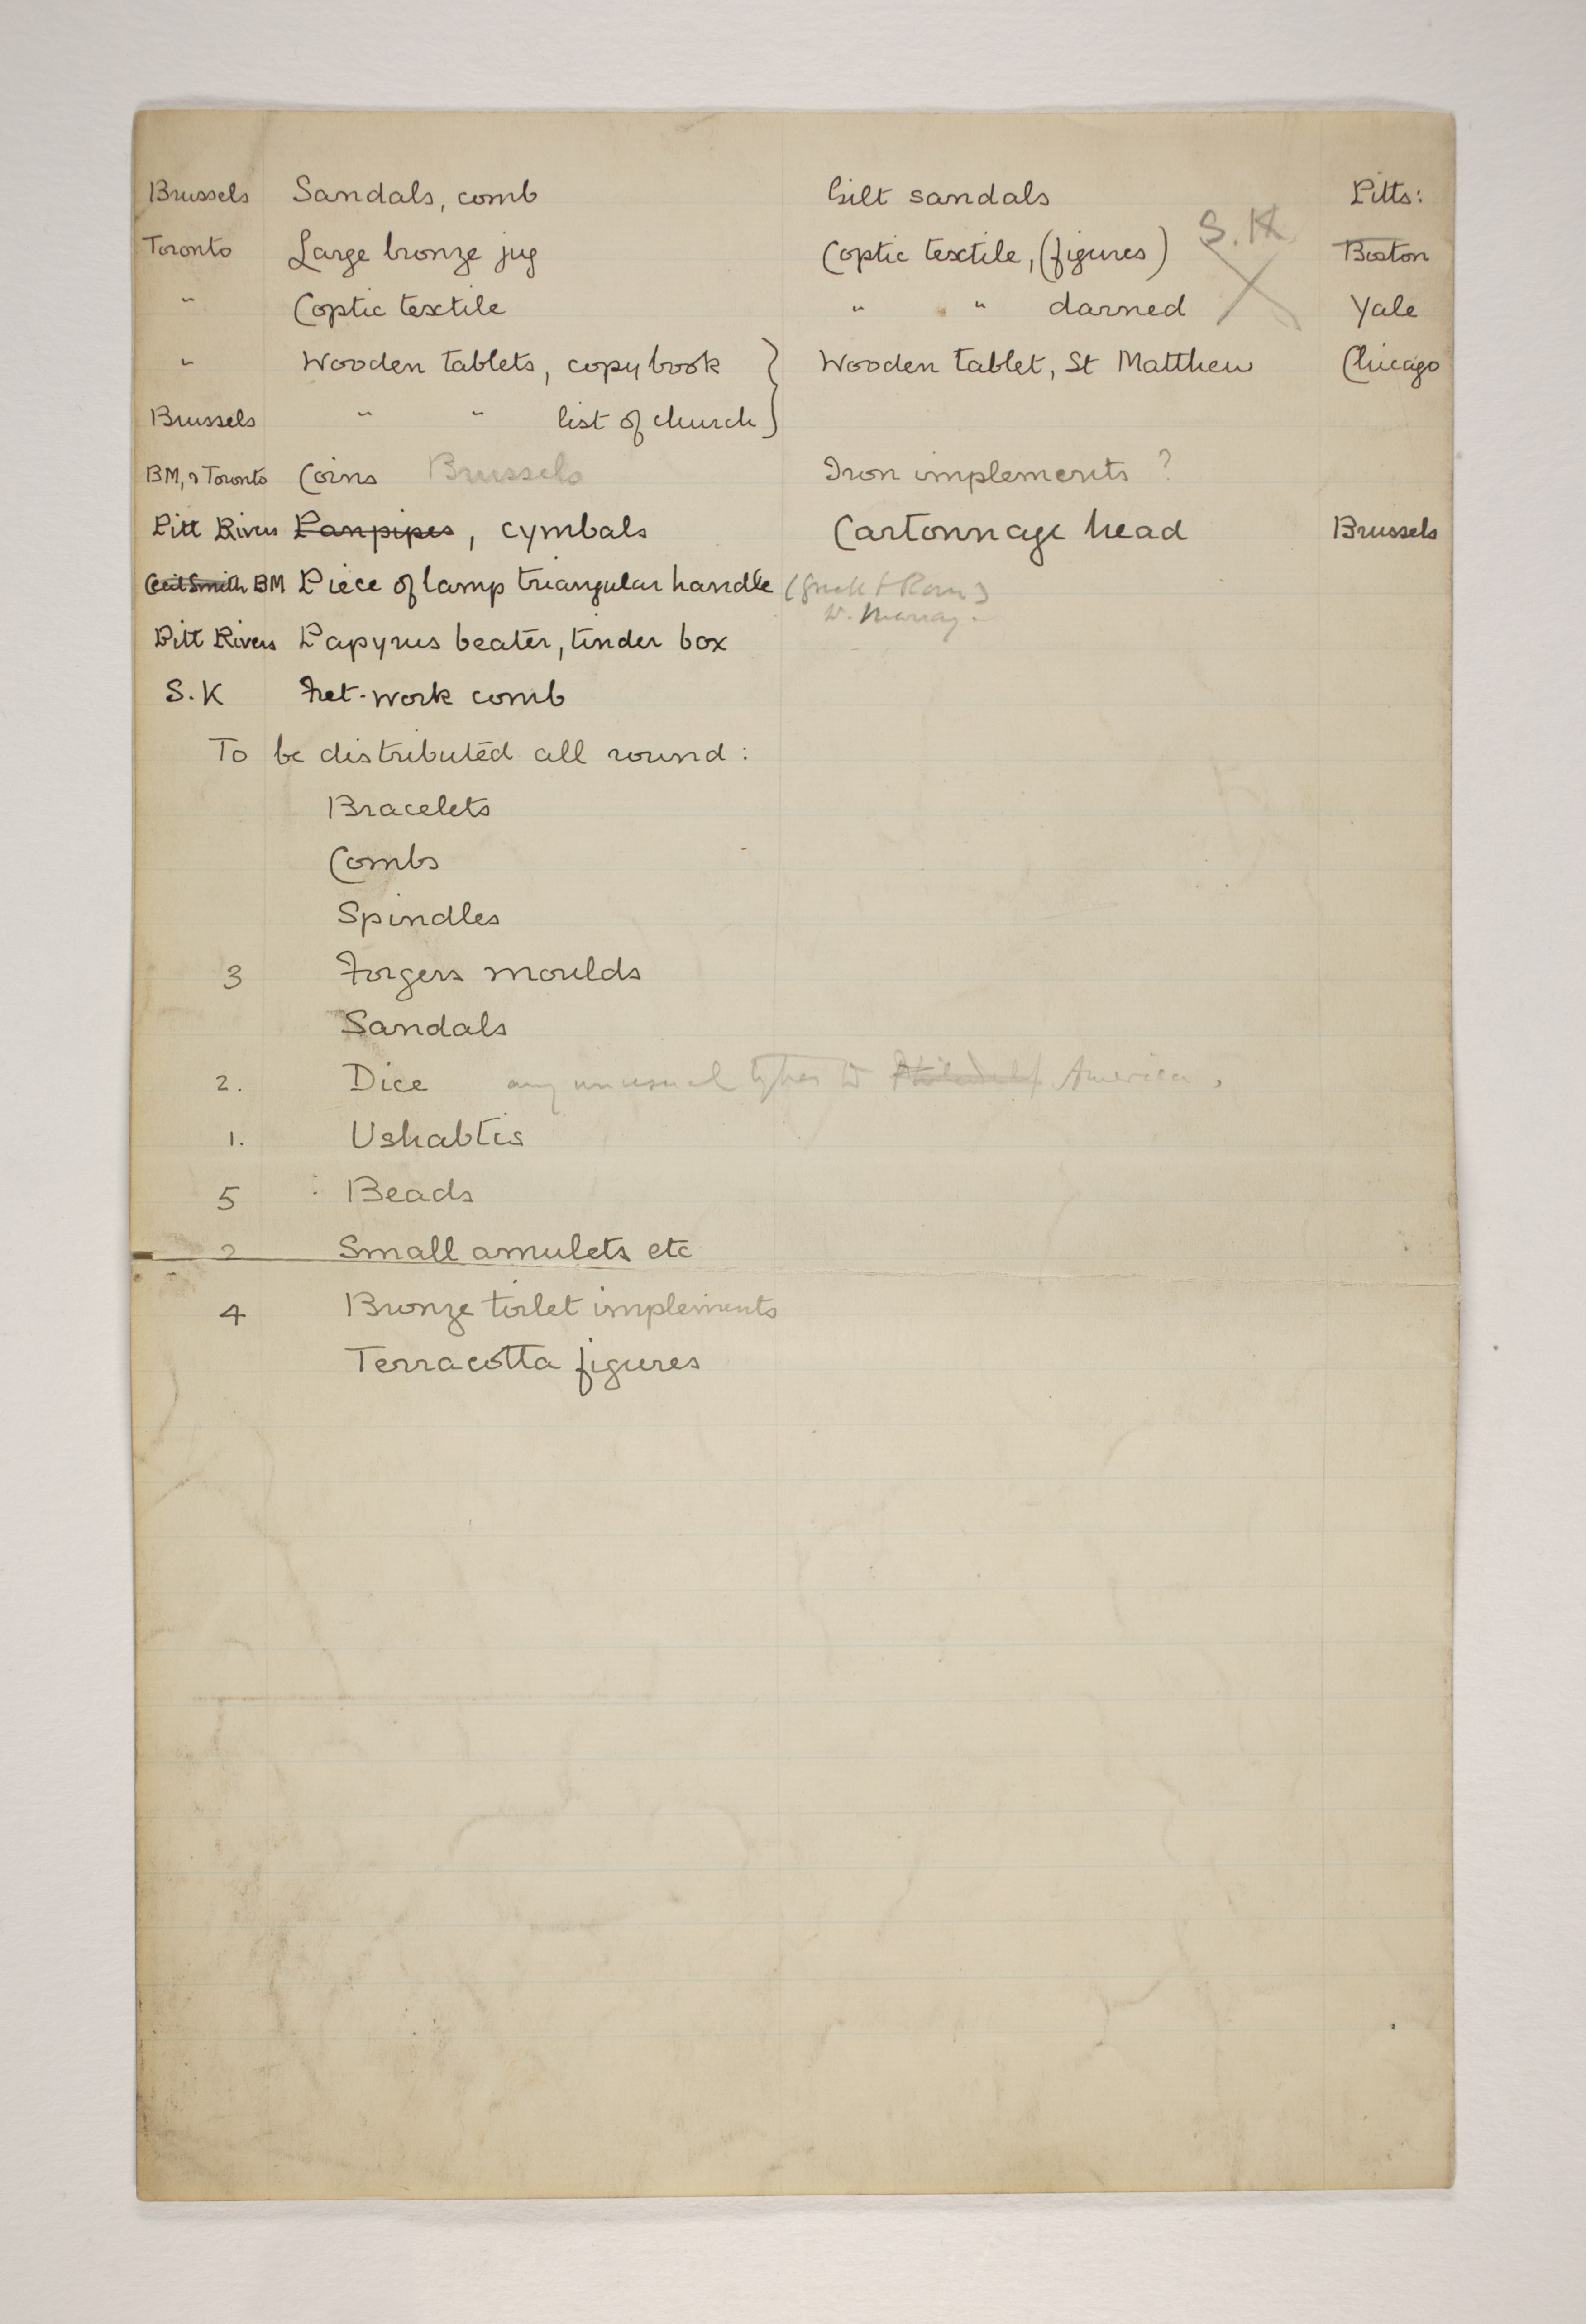 Brussels Sandals, comb Gilt sandals Pitts:
Toronto Large bronze jug Coptic textile, (figures) S.K Boston
" Coptic textile " " darned Yale
" Wooden tablets, copy book } Wooden tablet, St Matthew Chicago
Brussels " " list of church }
BM, & Toronto Coins Brussels Iron implements ?
Pitt Rivers Panpipes, cymbals Cartonnage head Brussels
Cecil Smith BM Piece of lamp triangular handle (Greek & Rom)
W. Murray.
Pitt Rivers Papyrus beater, tinder box
S.K Fret-work comb
To be distributed all round:
Bracelets
Combs
Spindles
3 Forgers moulds
Sandals
2. Dice any unusual types to America.
1. Ushabtis
5 : Beads
2 Small amulets etc
4 Bronze toilet implements
Terracotta figures